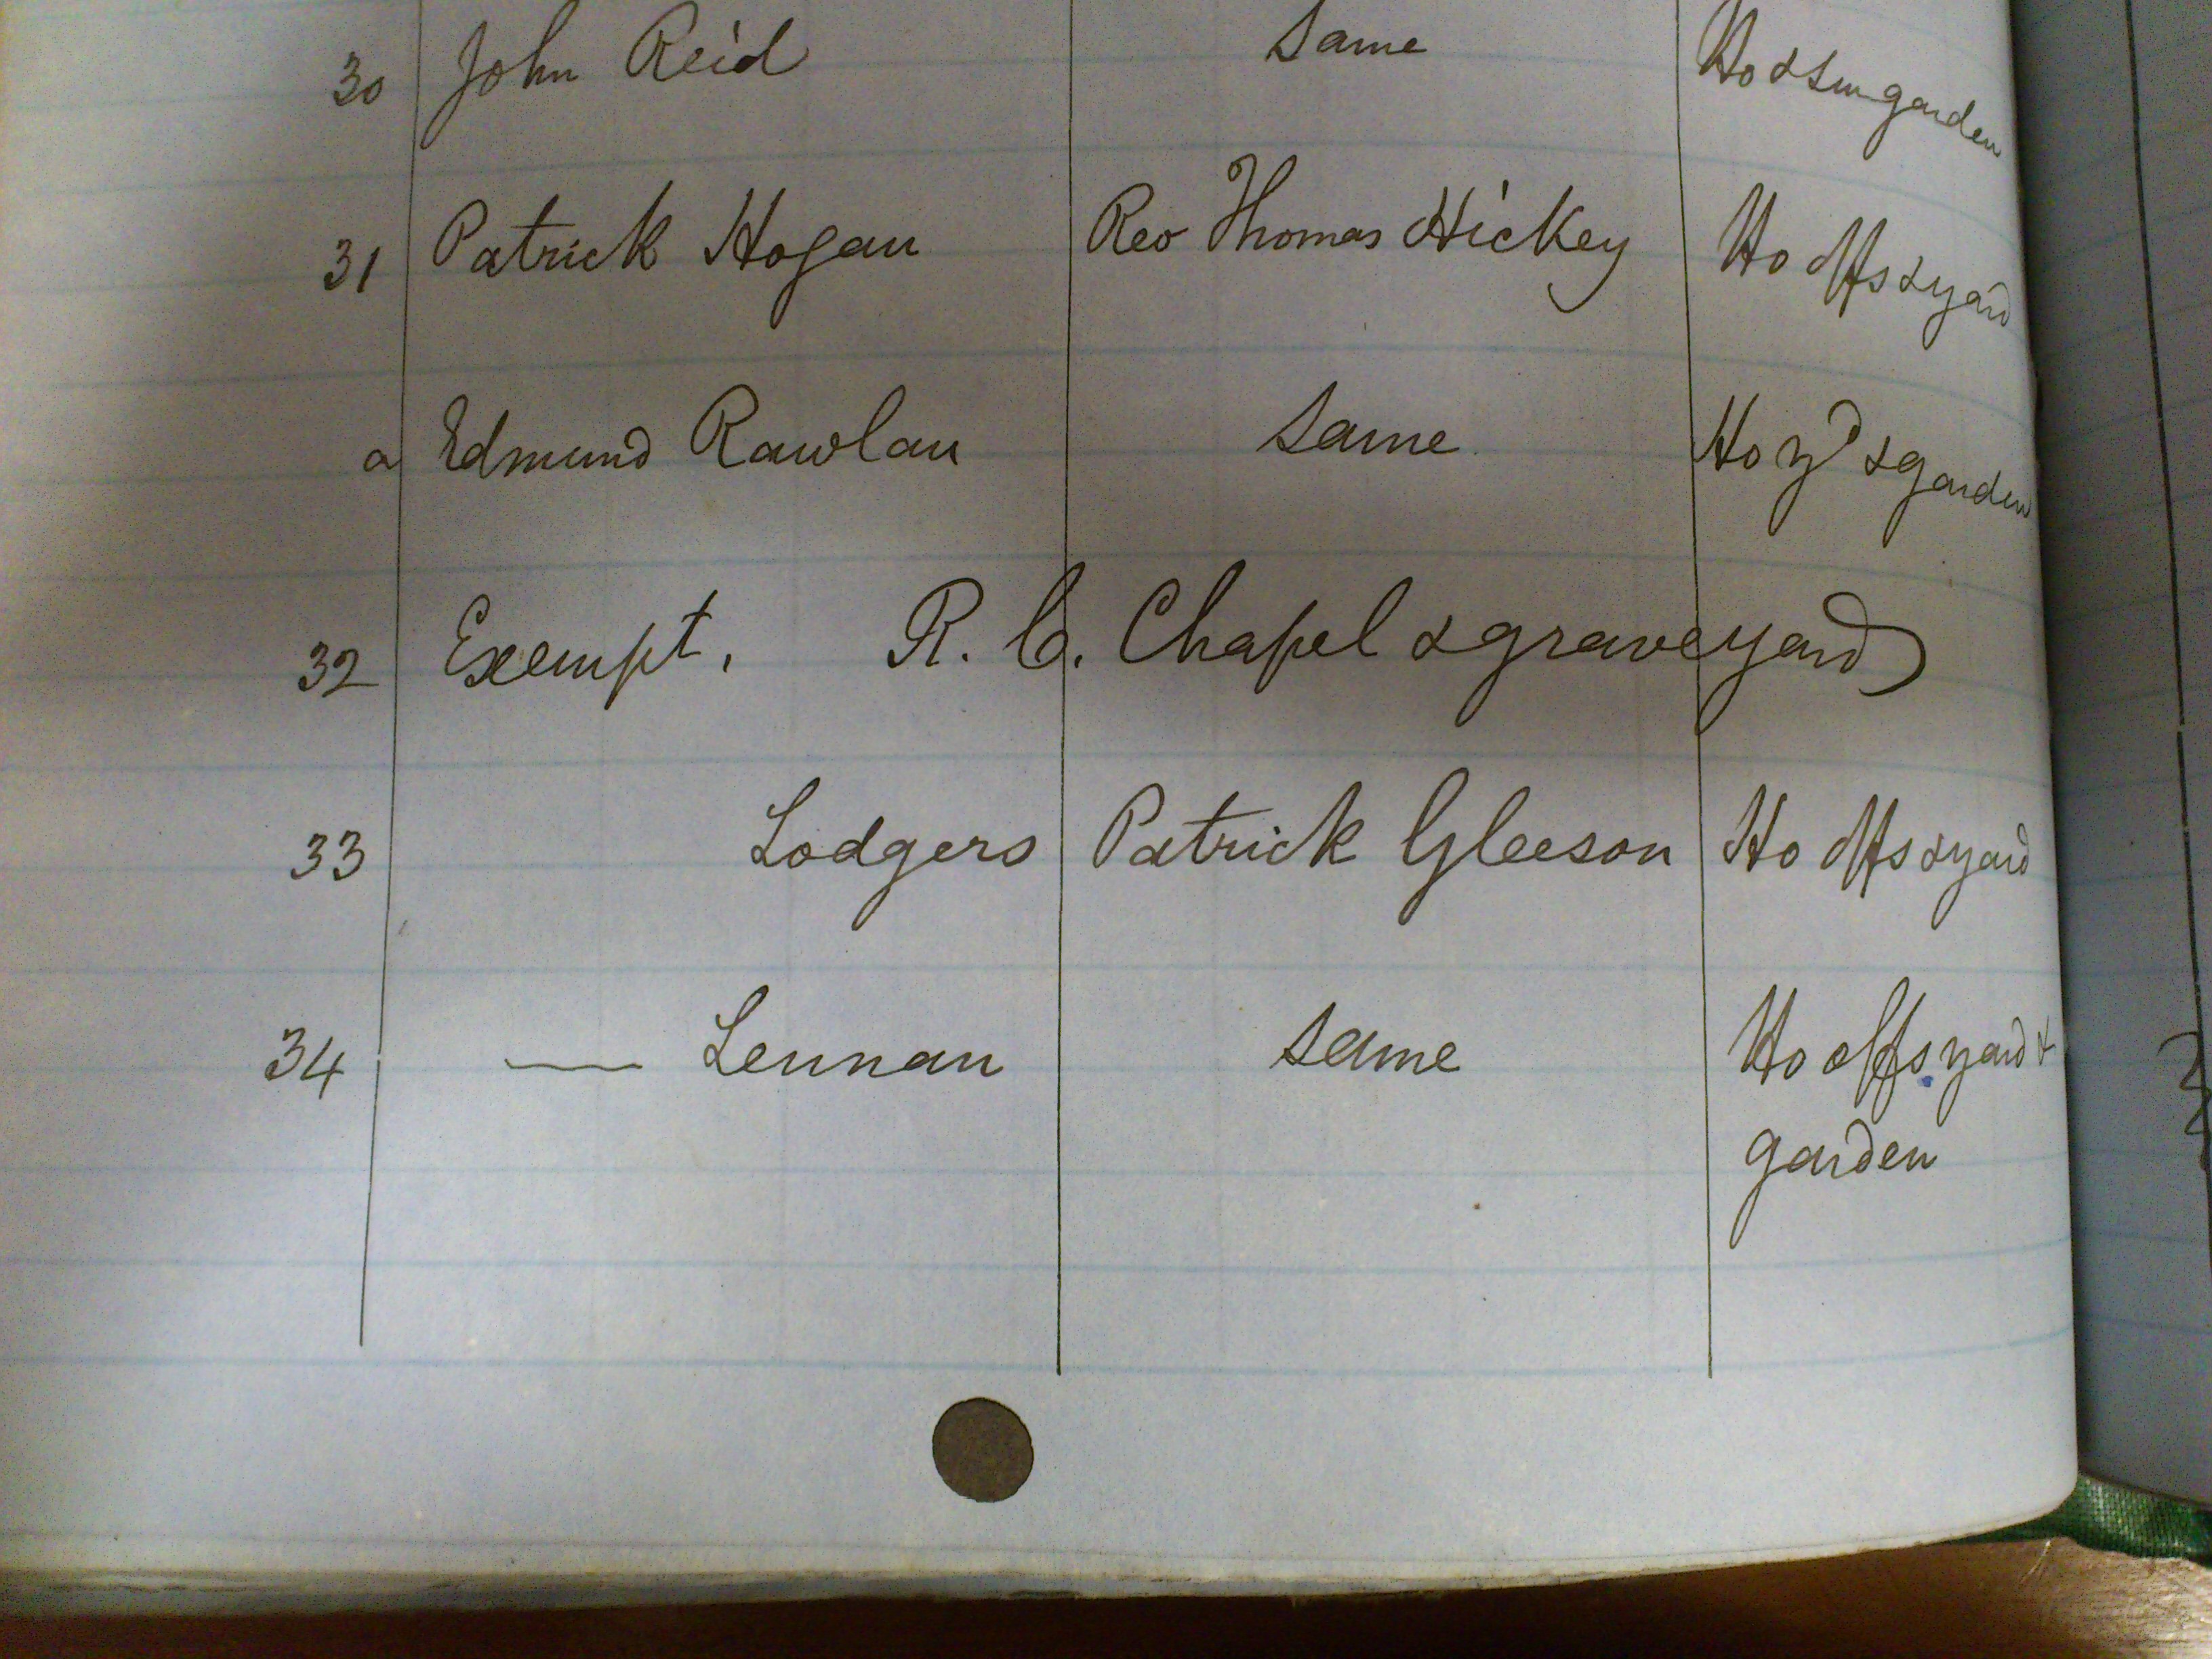 30 John Reid same Ho & sm garden
31 Patrick Hogan Rev Thomas Hickey Ho offs & yard
a Edmund Rawlan same Ho yd & garden
32 Exempt, R. C. Chapel & graveyard
33 Lodgers Patrick Gleeson Ho offs & yard
34 — Lennan same Ho offs yard &
garden